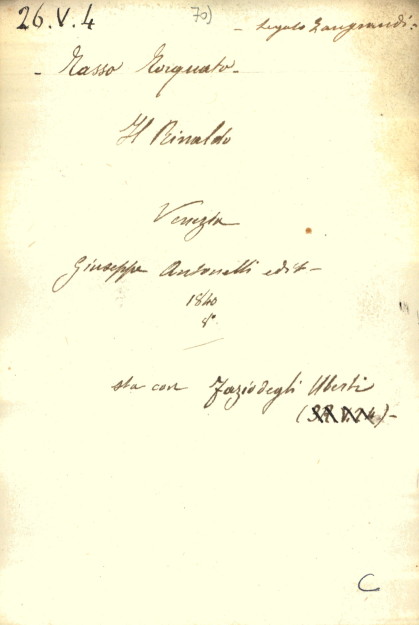 26.V.4
70)
- Legato Zangrandi -
- Tasso Torquato -
Il Rinaldo
Venezia
Giuseppe Antonelli edit -
1840
8°.
sta con Fazio degli Uberti
C